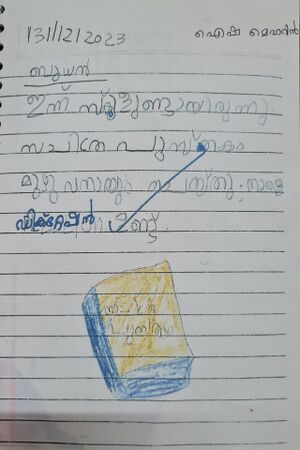 13/12/2023
ഐഷ മെഹറിൻ
ബുധൻ
ഇന്ന് സ്കൂളുണ്ടായിരുന്നു.
സചിത്ര പുസ്തകം
മുഴുവനാക്കും ചെയ്തു. നാളെ
ഡിക്റ്റേഷൻ ഉണ്ട്
പുസ്തകം